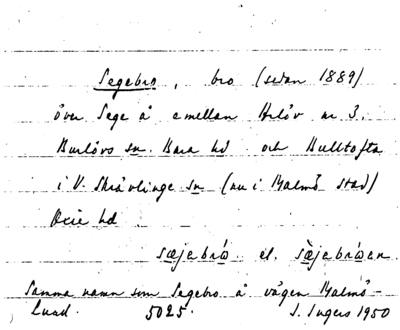 Segebro, bro (sedan 1889)
över Sege å emellan Arlöv nr 3.
Burlövs sn. Bara hd och Bulltofta
i V. Skrävlinge sn (nu i Malmö stad)
Oxie hd
sæjebrώ. el. sæ̀jebrώen
Samma namn som Segebro å vägen Malmö–
Lund. 5025. I. Ingers 1950